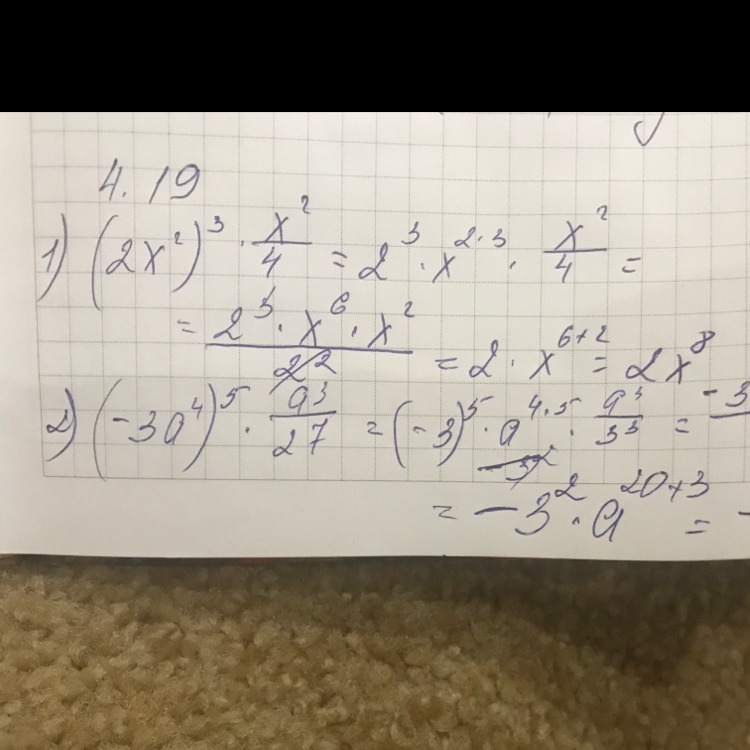 4.19
1) (2x²)³ · x²/4 = 2³ · x^(2·3) · x²/4 =
= (2³ · x⁶ · x²)/2² = 2 · x^(6+2) = 2x⁸
2) (-3a⁴)⁵ · a³/27 = (-3)⁵ · a^(4·5) · a³/3³ = -3
= -3² · a^(20+3) = -